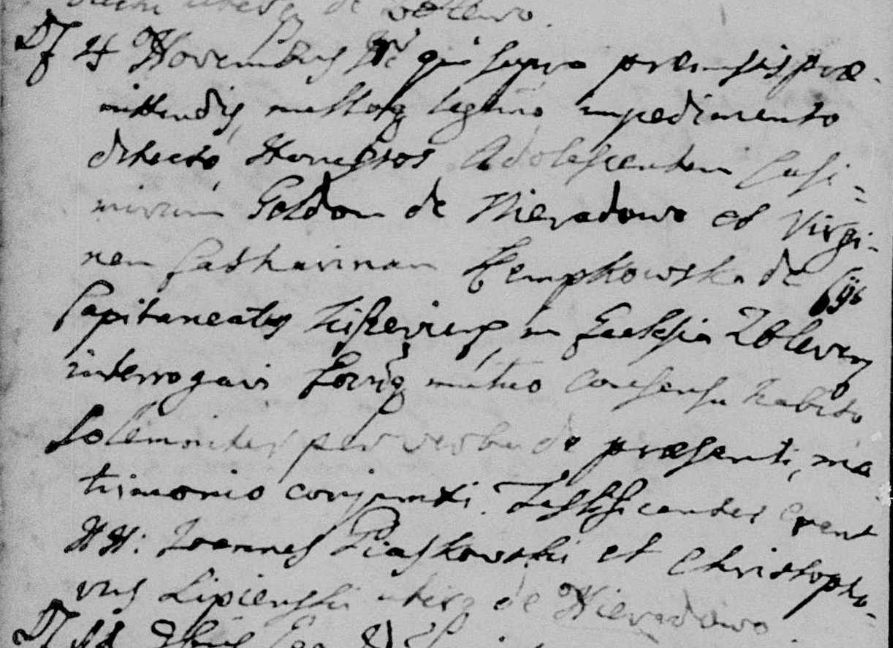 utriq de
D 4 Novembris Id qui supra præmissis præ-
mittendis, nulloq legitimo impedimento
detecto, Honestos Adolescentem Casi-
mirum Goldon de Nieradowo et Virgi-
nem Catharinam Kempkowska de
Capitaneatus in Ecclesia Zbleven
interrogavi Eorūq mutuo consensu habito
Solemniter per verba de præsenti, ma
trimonio conjunxi. Testificantes erant
HH: Joannes Piaskowski et Christopho-
rus Lipienski uterq de Nieradowo.
D